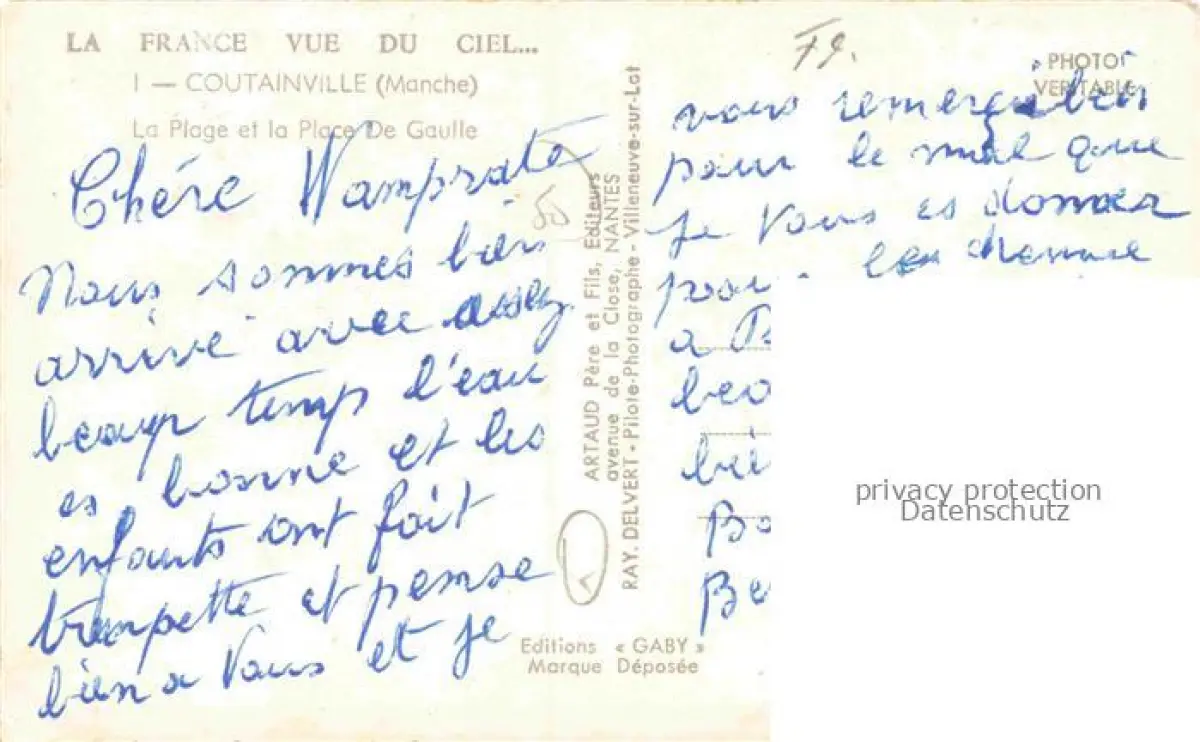 LA FRANCE VUE DU CIEL...
1 — COUTAINVILLE (Manche)
La Plage et la Place De Gaulle
Chére
Nous sommes bien
arrivé avec assez
beaup temp l'eau
es bonne et les
enfants ont fait
trempette et pense
bien a Vous et je
ARTAUD Père et Fils, Editeurs
avenue de la Close, NANTES
RAY. DELVERT - Pilote-Photographe - Villeneuve-sur-Lot
Editions « GABY »
Marque Déposée
PHOTO
VERITABLE
vous
pour le mal que
je Vous es donner
pour
a
bea
biè
Bo
Be
privacy protection
Datenschutz